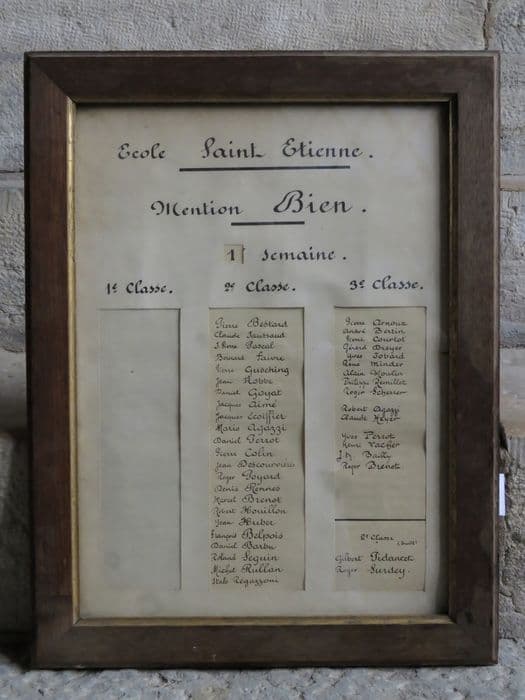 Ecole Saint Etienne.
Mention Bien.
1 semaine.
1e Classe.
2e Classe.
Pierre Bestard
Claude
Pascal
Bernard Favre
Pierre Gusching
Jean Robbe
Daniel Goyat
Jacques Aimé
Jacques Ecoiffier
Mario Agazzi
Daniel Perrot
Pierre Colin
Jean Descourvières
Roger Poyard
Denis Rennes
Marcel Brenot
Robert Houillon
Jean Huber
François Belpois
Daniel Barbe
Roland Seguin
Michel Rullan
Italo Regazzoni
3e Classe.
Pierre Arnoux
André Bertin
Pierre Courtot
Gérard Dreyer
Yves Jobard
René Minder
Alain Moulin
Philippe Remillet
Roger Scherrer
Robert Agazzi
Claude Meyer
Yves Perrot
Henri Vacher
J.M. Bailly
Roger Brenot
2e Classe
(suite)
Gilbert Pidancet
Roger Surdey.